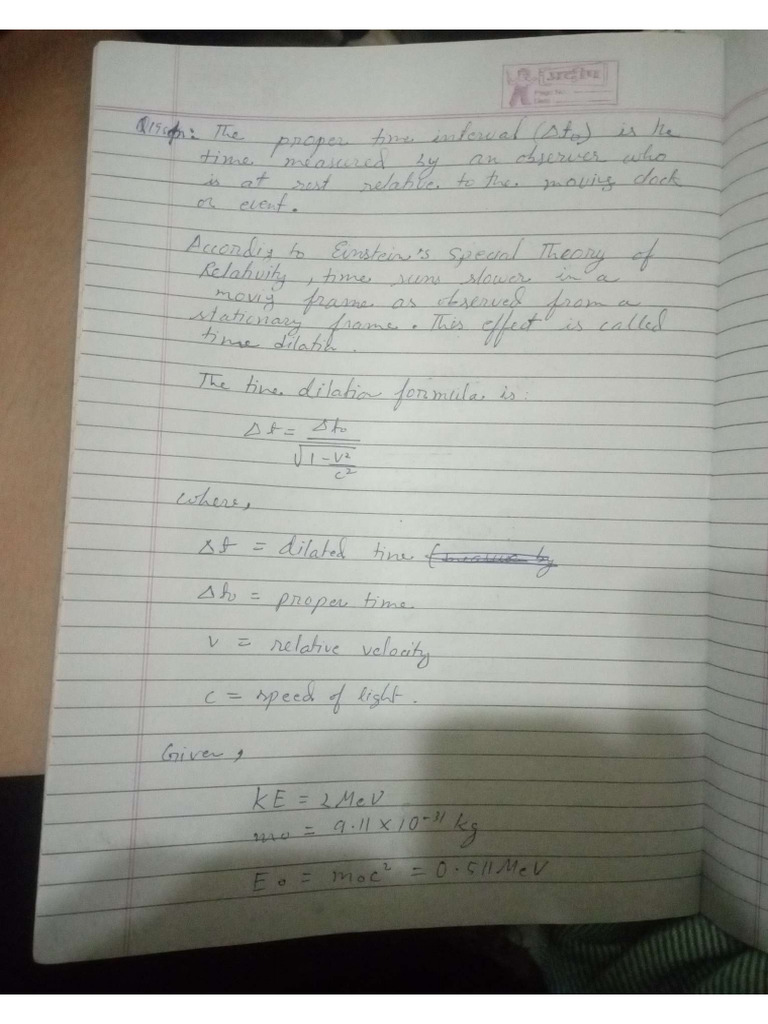 अदीप
Page No.
Date
Q19 Ans: The proper time interval (Δt₀) is the
time measured by an observer who
is at rest relative to the moving clock
or event.
According to Einstein's special Theory of
Relativity, time runs slower in a
moving frame as observed from a
stationary frame. This effect is called
time dilation.
The time dilation formula is:
Δt = Δt₀
√1 - v²
c²
where,
Δt = dilated time (measure by
Δt₀ = proper time
v = relative velocity
c = speed of light.
Given,
KE = 2 MeV
m₀ = 9.11 × 10⁻³¹ kg
E₀ = m₀c² = 0.511 MeV